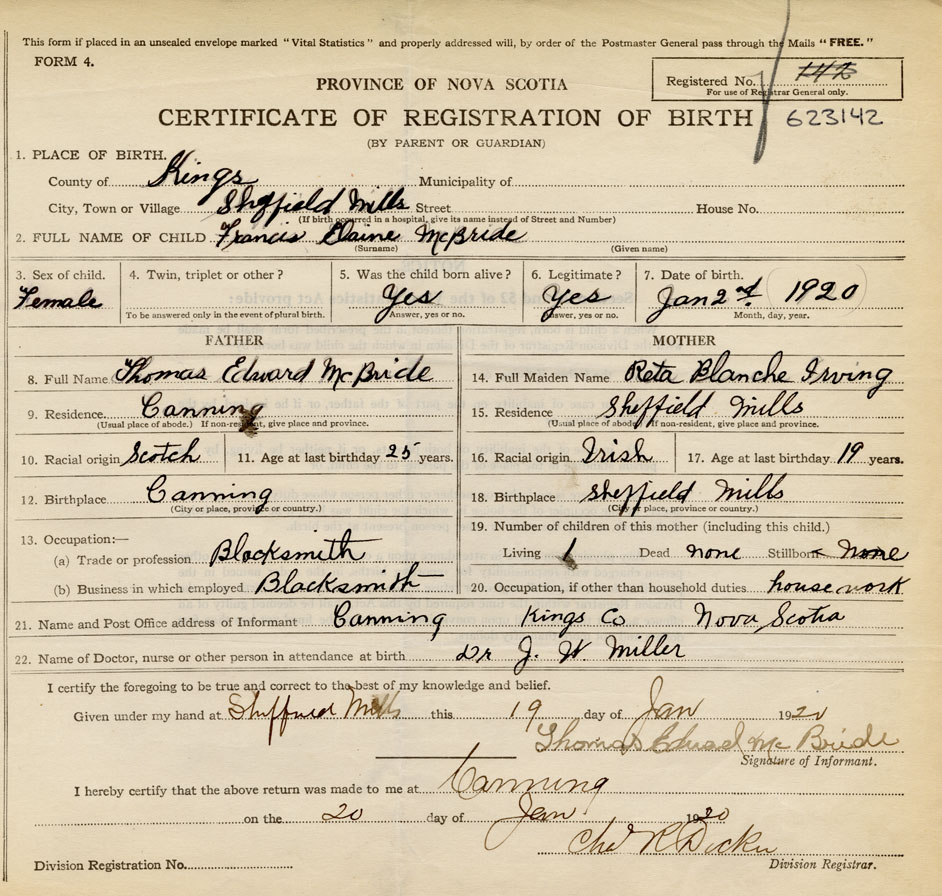 This form if placed in an unsealed envelope marked "Vital Statistics" and properly addressed will, by order of the Postmaster General pass through the Mails "FREE."
FORM 4.
PROVINCE OF NOVA SCOTIA
Registered No. 142
For use of Registrar General only.
CERTIFICATE OF REGISTRATION OF BIRTH
623142
(BY PARENT OR GUARDIAN)
1. PLACE OF BIRTH.
County of Kings Municipality of
City, Town or Village Sheffield Mills Street House No.
(If birth occurred in a hospital, give its name instead of Street and Number)
2. FULL NAME OF CHILD Francis Elaine McBride
(Surname) (Given name)
3. Sex of child. 4. Twin, triplet or other? 5. Was the child born alive? 6. Legitimate? 7. Date of birth.
Female Yes Yes Jan 2nd 1920
To be answered only in the event of plural birth. Answer, yes or no. Answer, yes or no. Month, day, year.
FATHER MOTHER
8. Full Name Thomas Edward McBride 14. Full Maiden Name Reta Blanche Irving
9. Residence. Canning 15. Residence Sheffield Mills
(Usual place of abode.) If non-resident, give place and province. (Usual place of abode.) If non-resident, give place and province.
10. Racial origin Scotch 11. Age at last birthday 25 years. 16. Racial origin Irish 17. Age at last birthday 19 years.
12. Birthplace Canning 18. Birthplace Sheffield Mills
(City or place, province or country.) (City or place, province or country.)
13. Occupation:— 19. Number of children of this mother (including this child.)
(a) Trade or profession Blacksmith Living 1 Dead none Stillborn none
(b) Business in which employed Blacksmith 20. Occupation, if other than household duties house work
21. Name and Post Office address of Informant Canning Kings Co Nova Scotia
22. Name of Doctor, nurse or other person in attendance at birth Dr J. W. Miller
I certify the foregoing to be true and correct to the best of my knowledge and belief.
Given under my hand at Sheffield Mills this 19 day of Jan 1920
Thomas Eduad McBride
Signature of Informant.
I hereby certify that the above return was made to me at Canning
on the 20 day of Jan 1920
Division Registration No. Division Registrar.